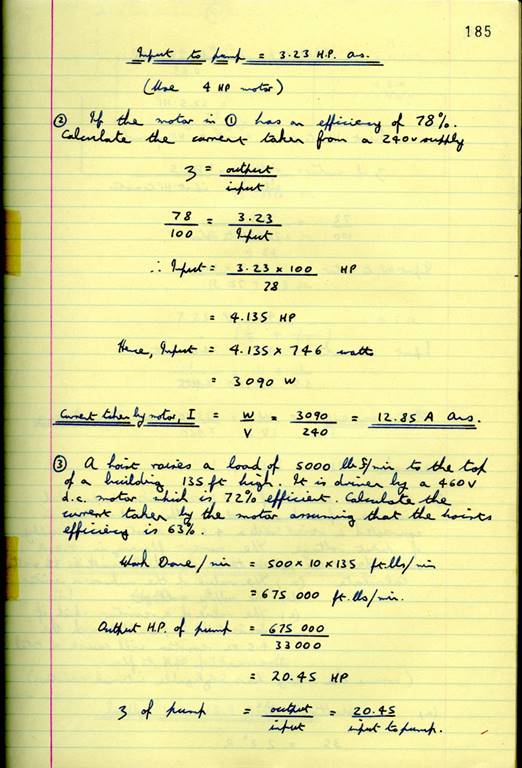 185
Input to pump = 3.23 H.P. ans.
(Use 4 HP motor)
② If the motor in ① has an efficiency of 78%.
Calculate the current taken from a 240v supply
η = output / input
78 / 100 = 3.23 / Input
∴ Input = 3.23 x 100 / 78 HP
= 4.135 HP
Hence, Input = 4.135 x 746 watts
= 3090 W
Current taken by motor, I = W / V = 3090 / 240 = 12.85 A Ans.
③ A hoist raises a load of 5000 lbs/min to the top
of a building 135 ft high. It is driven by a 460V
d.c. motor which is 72% efficient. Calculate the
current taken by the motor assuming that the hoists
efficiency is 63%.
Work Done/min = 500 x 10 x 135 ft.lbs/min
= 675 000 ft.lbs/min.
Output H.P. of pump = 675 000 / 33000
= 20.45 HP
η of pump = output / input = 20.45 / input to pump.